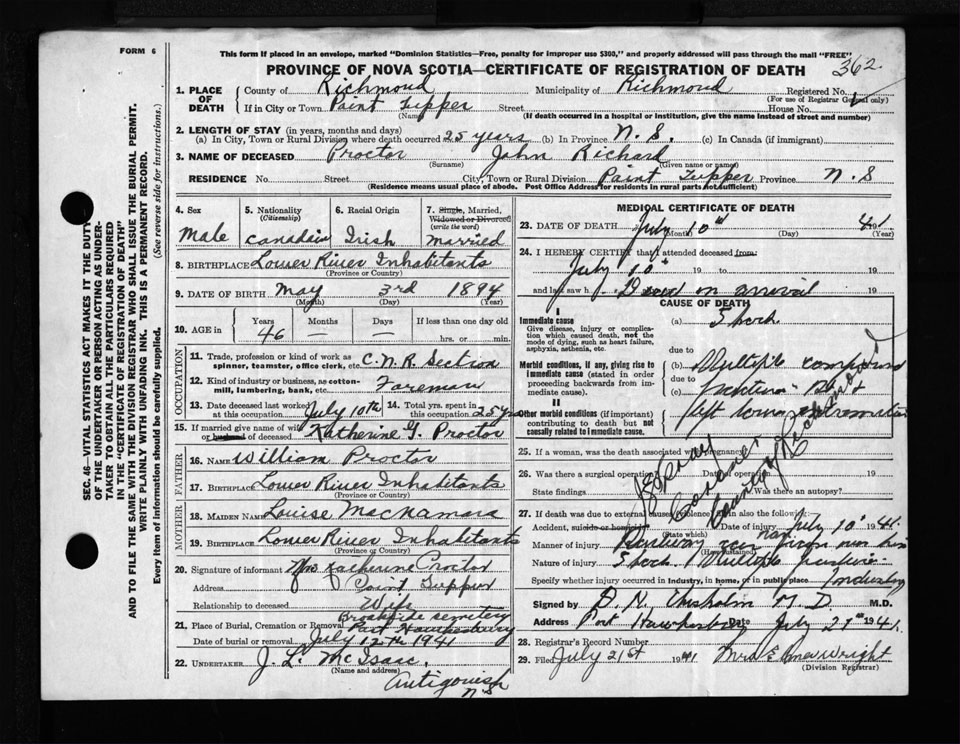 FORM 6
This form if placed in an envelope, marked "Dominion Statistics—Free, penalty for improper use $300," and properly addressed will pass through the mail "FREE"
PROVINCE OF NOVA SCOTIA—CERTIFICATE OF REGISTRATION OF DEATH 362
1. PLACE OF DEATH
County of Richmond Municipality of Richmond Registered No.
(For use of Registrar General only)
If in City or Town Point Tupper Street House No.
(Name) (If death occurred in a hospital or institution, give the name instead of street and number)
2. LENGTH OF STAY (in years, months and days)
(a) In City, Town or Rural Division where death occurred 25 years (b) In Province N. S. (c) In Canada (if immigrant)
3. NAME OF DECEASED Proctor John Richard
(Surname) (Given name or names)
RESIDENCE No. Street City, Town or Rural Division Point Tupper Province N. S
(Residence means usual place of abode. Post Office Address for residents in rural parts not sufficient)
4. Sex
male
5. Nationality
(Citizenship)
Canadain
6. Racial Origin
Irish
7. Single, Married,
Widowed or Divorced
(write the word)
married
8. BIRTHPLACE Lower River Inhabitants
(Province or Country)
9. DATE OF BIRTH May 3rd 1894
(Month) (Day) (Year)
10. AGE in
Years Months Days If less than one day old
46 — — hrs. or min.
OCCUPATION
11. Trade, profession or kind of work as spinner, teamster, office clerk, etc. C.N.R. Section
12. Kind of industry or business, as cotton-mill, lumbering, bank, etc. Foreman
13. Date deceased last worked at this occupation July 10th
14. Total yrs. spent in this occupation 25 yrs
15. If married give name of wife or husband of deceased Katherine G. Proctor
FATHER
16. NAME William Proctor
17. BIRTHPLACE Lower River Inhabitants
(Province or Country)
MOTHER
18. MAIDEN NAME Louise MacNamara
19. BIRTHPLACE Lower River Inhabitants
(Province or Country)
20. Signature of informant Mrs Katherine Proctor
Address Point Tupper
Relationship to deceased Wife
Brookside cemetery
21. Place of Burial, Cremation or Removal Port Hawkesbury
Date of burial or removal July 12th 1941
22. UNDERTAKER J. L. McIsaac.
(Name and address)
Antigonish
N S
MEDICAL CERTIFICATE OF DEATH
23. DATE OF DEATH July 10th 41
(Month) (Day) (Year)
24. I HEREBY CERTIFY that I attended deceased from:
July 10th 19 to 19
and last saw h Dead on arrival 19
CAUSE OF DEATH
Immediate cause
Give disease, injury or complication which caused death, not the mode of dying, such as heart failure, asphyxia, asthenia, etc.
(a) Shock
due to
Morbid conditions, if any, giving rise to immediate cause (stated in order proceeding backwards from immediate cause).
(b) Multiple compound
due to
(c) fractures Rt &
Other morbid conditions (if important) contributing to death but not causally related to immediate cause.
left lower extremities
25. If a woman, was the death associated with pregnancy?
26. Was there a surgical operation? Date of operation 19
State findings Was there an autopsy?
Coroner
County of Richmond
27. If death was due to external causes (violence) fill in also the following:
Accident, suicide or homicide? Date of injury July 10th 1941
(State which)
Manner of injury Railway car ran over him
(How sustained)
Nature of injury Shock Multiple fracture
Specify whether injury occurred in industry, in home, or in public place Industry
Signed by D. N. Chisholm M D. M.D.
Address Port Hawkesbury Date July 21st 1941
28. Registrar's Record Number
29. Filed July 21st 1941
(Division Registrar)
SEC. 46—VITAL STATISTICS ACT MAKES IT THE DUTY OF THE UNDERTAKER OR PERSON ACTING AS UNDERTAKER TO OBTAIN ALL THE PARTICULARS REQUIRED IN THE "CERTIFICATE OF REGISTRATION OF DEATH" AND TO FILE THE SAME WITH THE DIVISION REGISTRAR WHO SHALL ISSUE THE BURIAL PERMIT.
WRITE PLAINLY WITH UNFADING INK. THIS IS A PERMANENT RECORD.
Every item of information should be carefully supplied. (See reverse side for instructions.)